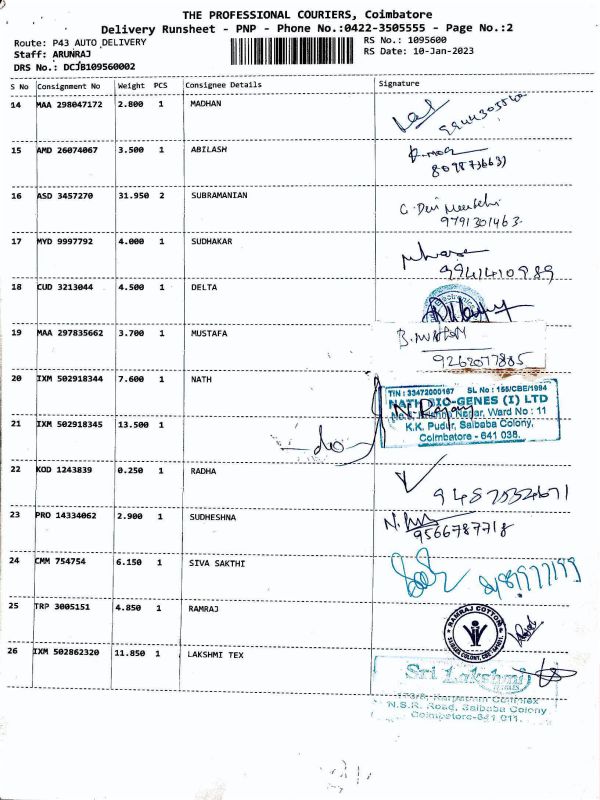 THE PROFESSIONAL COURIERS, Coimbatore
Delivery Runsheet - PNP - Phone No.:0422-3505555 - Page No.:2
Route: P43 AUTO DELIVERY
RS No.: 1095600
Staff: ARUNRAJ
RS Date: 10-Jan-2023
DRS No.: DCJB109560002
S No Consignment No Weight PCS Consignee Details Signature
14 MAA 298047172 2.800 1 MADHAN
15 AMD 26074067 3.500 1 ABILASH
16 ASD 3457270 31.950 2 SUBRAMANIAN
9791301463
17 MYD 9997792 4.000 1 SUDHAKAR
9941410989
18 CUD 3213044 4.500 1 DELTA
19 MAA 297835662 3.700 1 MUSTAFA
9262077885
20 IXM 502918344 7.600 1 NATH
TIN : 33472000167 SL No : 155/CBE/1994
NATH BIO-GENES (I) LTD
Nagar, Ward No : 11
K.K. Pudur, Saibaba Colony,
Coimbatore - 641 038.
21 IXM 502918345 13.500 1
22 KOD 1243839 0.250 1 RADHA
23 PRO 14334062 2.900 1 SUDHESHNA
9566787718
24 CMM 754754 6.150 1 SIVA SAKTHI
25 TRP 3005151 4.850 1 RAMRAJ
RAMRAJ COTTON
26 IXM 502862320 11.850 1 LAKSHMI TEX
Sri Lakshmi
N.S.R. Road, Saibaba Colony
Coimbatore-641 011.